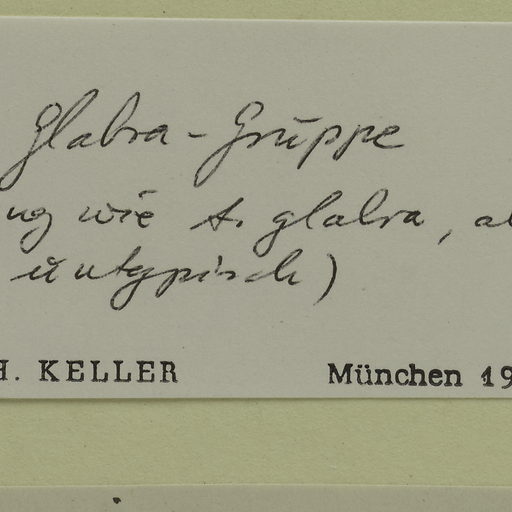 Glabra-Gruppe
ng wie A. glabra, a
untypisch)
H. KELLER München 19